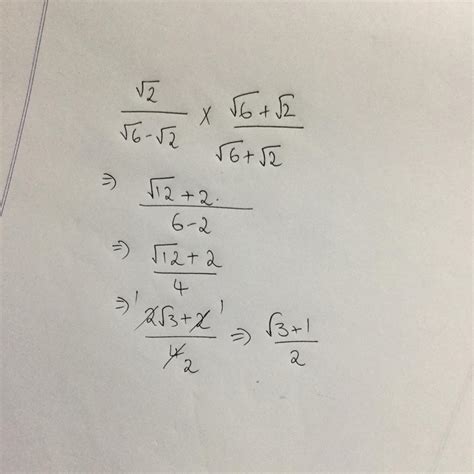 √2/(√6-√2) × (√6+√2)/(√6+√2)
⇒ (√12+2.)/(6-2)
⇒ (√12+2)/4
⇒ ¹(2√3+2¹)/(4 2) ⇒ (√3+1)/2